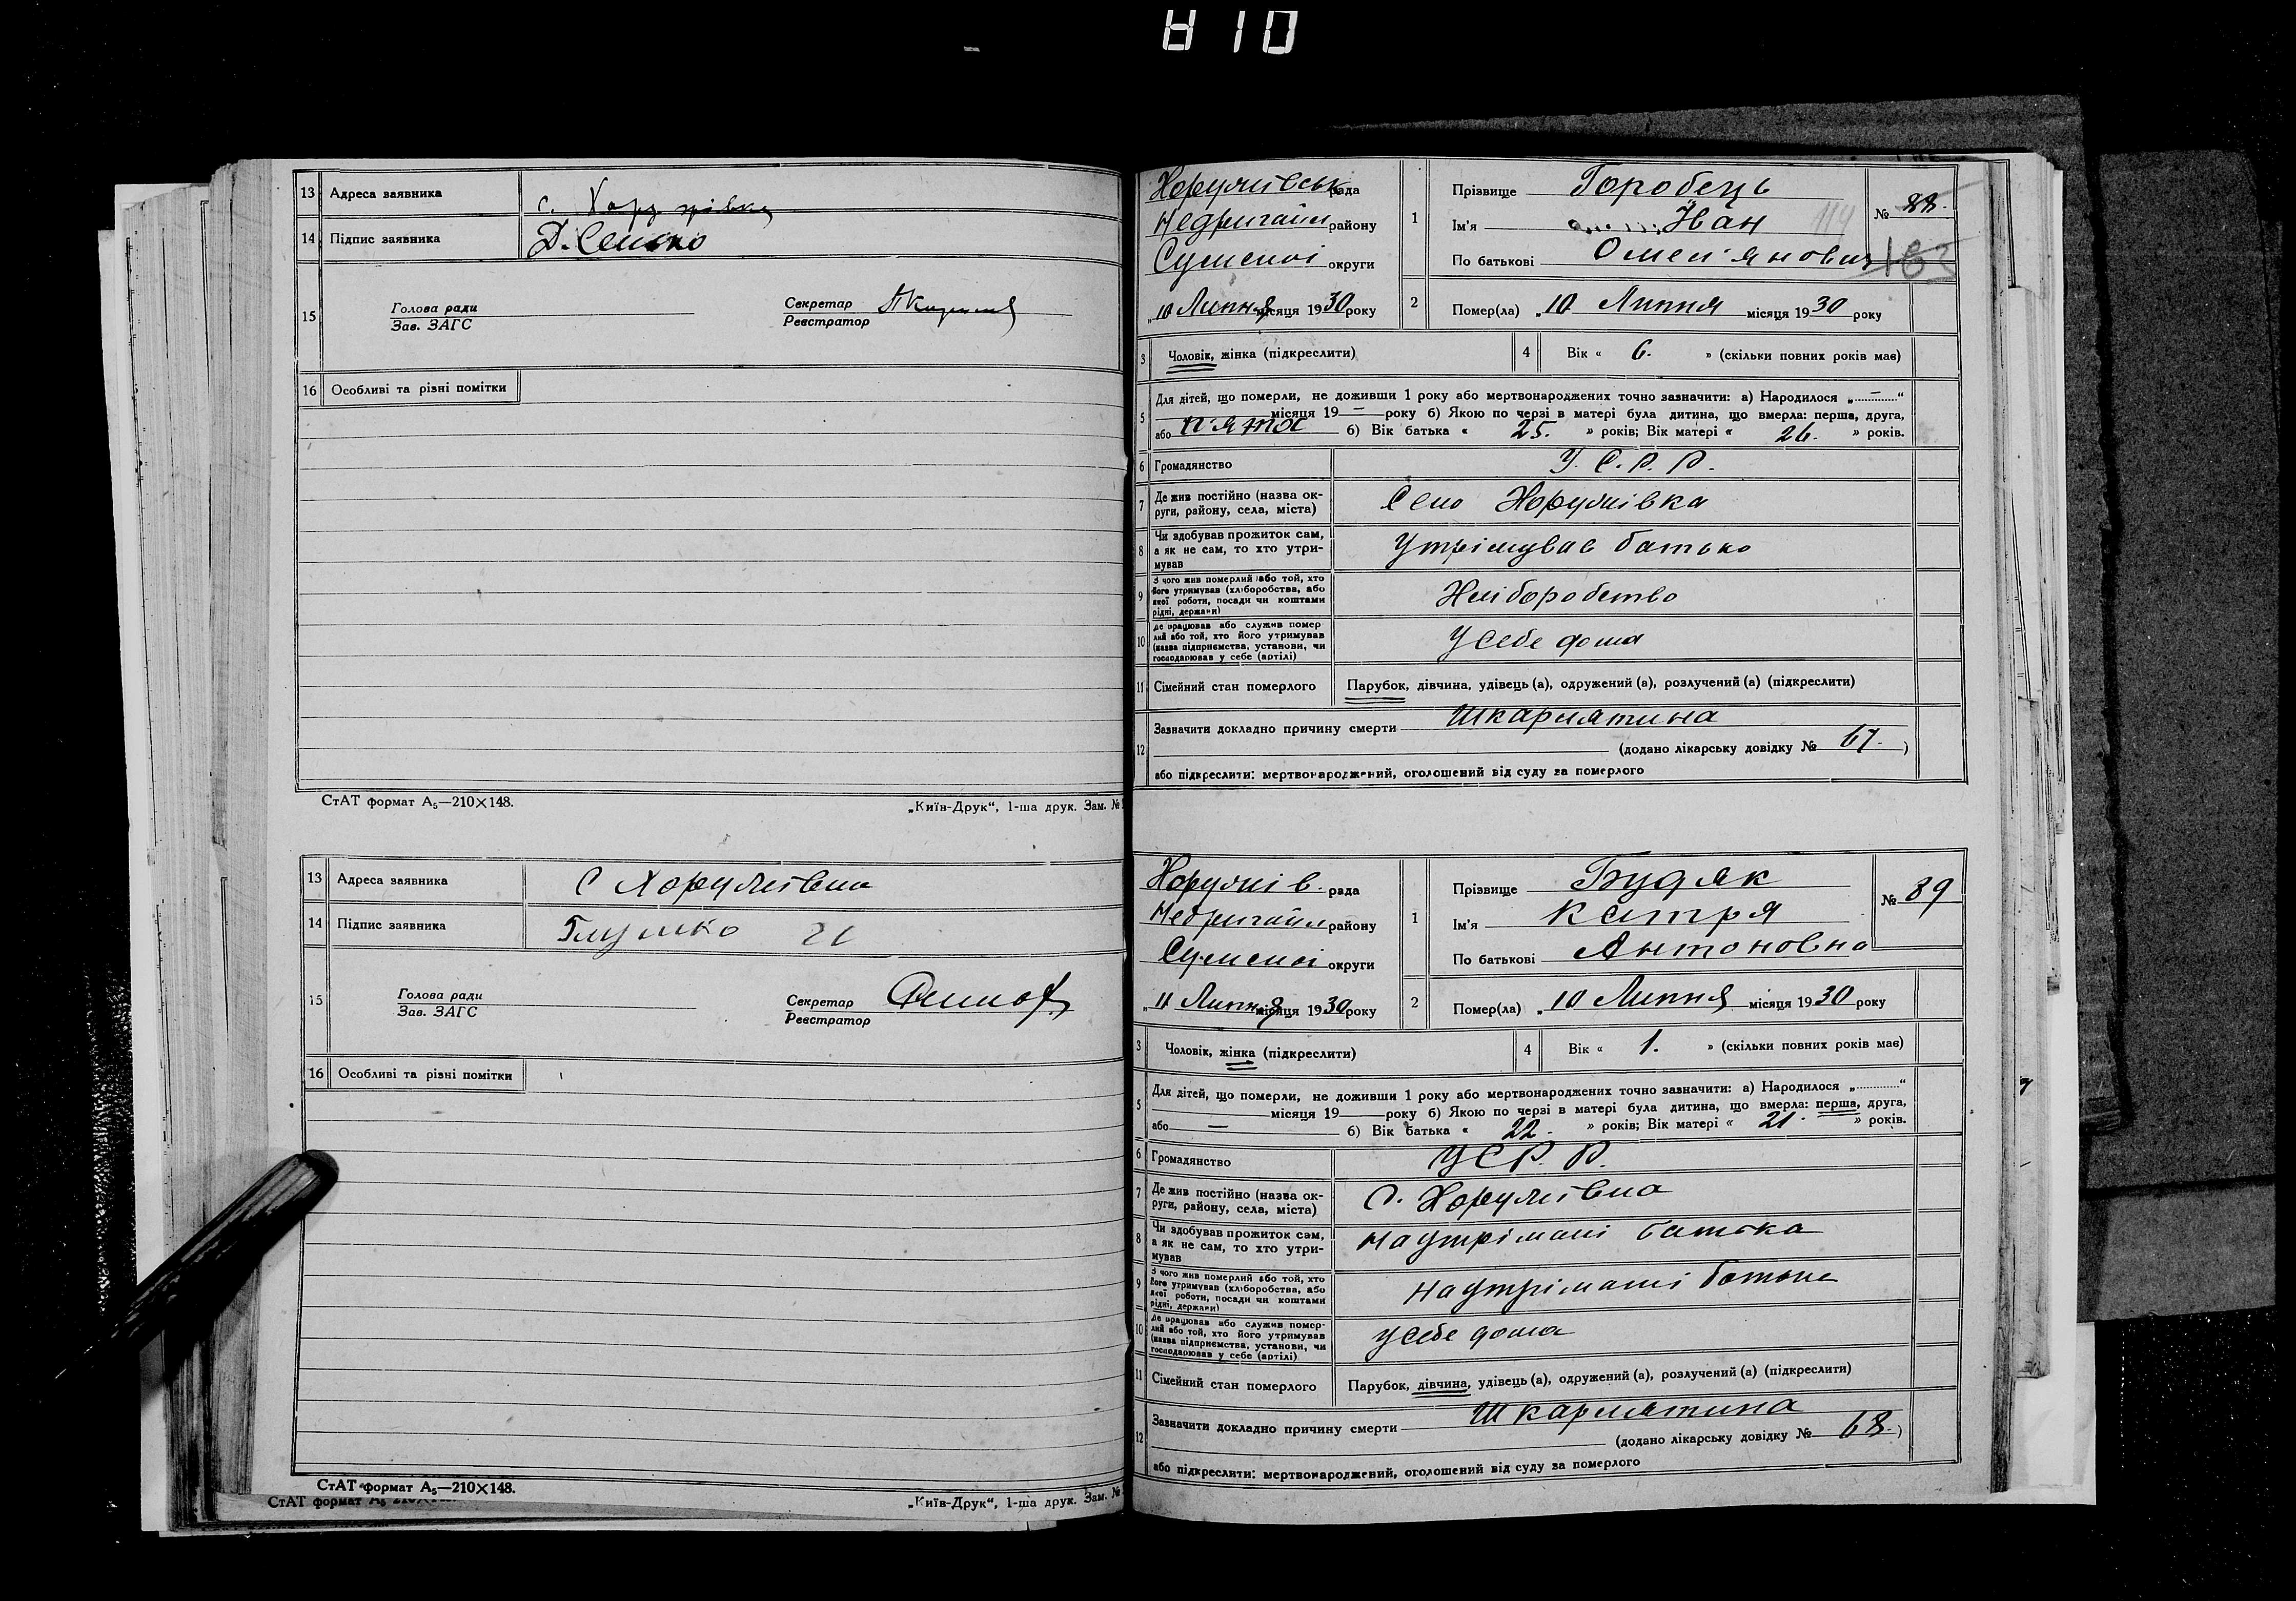 810
13 Адреса заявника с. Хоружівка
14 Підпис заявника Д. Сенько
15 Голова ради
Зав. ЗАГС
Секретар
Реєстратор
16 Особливі та різні помітки
СтАТ формат А₅—210×148.
„Київ-Друк“, 1-ша друк. Зам. №
13 Адреса заявника с Хоружівка
14 Підпис заявника
15 Голова ради
Зав. ЗАГС
Секретар
Реєстратор
16 Особливі та різні помітки
СтАТ формат А₅—210×148.
СтАТ формат А₅
„Київ-Друк“, 1-ша друк. Зам. №
Хоружівськ рада
Недригайл району
Сумської округи
„10 Липня місяця 1930 року
1 Прізвище Горобець
Ім'я Іван
По батькові Омел'янович
№ 88.
114
2 Помер(ла) „10 Липня місяця 1930 року
3 Чоловік, жінка (підкреслити)
4 Вік « 6. » (скільки повних років має)
5 Для дітей, що померли, не доживши 1 року або мертвонароджених точно зазначити: а) Народилося „ — “
місяця 19 — року б) Якою по черзі в матері була дитина, що вмерла: перша, друга,
або п'ята б) Вік батька « 25. » років; Вік матері « 26. » років.
6 Громадянство У. С. Р. Р.
7 Де жив постійно (назва ок-
руги, району, села, міста) Село Хоружівка
8 Чи здобував прожиток сам,
а як не сам, то хто утри-
мував Утрімував батько
9 З чого жив померлий або той, хто
його утримував (хліборобства, або
якої роботи, посади чи коштами
рідні, держави) Хліборобство
10 Де працював або служив помер
лий або той, хто його утримував
(назва підприємства, установи, чи
господарював у себе (артілі) У себе дома
11 Сімейний стан померлого Парубок, дівчина, удівець (а), одружений (а), розлучений (а) (підкреслити)
12 Зазначити докладно причину смерти Шкарлятина
(додано лікарську довідку № 67. )
або підкреслити: мертвонароджений, оголошений від суду за померлого
Хоружів. рада
Недригайл району
Сумської округи
„11 Липня місяця 1930 року
1 Прізвище Будяк
Ім'я Катря
По батькові Антоновна
№ 89
2 Помер(ла) „ 10 Липня місяця 1930 року
3 Чоловік, жінка (підкреслити)
4 Вік « 1. » (скільки повних років має)
5 Для дітей, що померли, не доживши 1 року або мертвонароджених точно зазначити: а) Народилося „ “
місяця 19 року б) Якою по черзі в матері була дитина, що вмерла: перша, друга,
або — б) Вік батька « 22. » років; Вік матері « 21. » років.
6 Громадянство УСР. Р.
7 Де жив постійно (назва ок-
руги, району, села, міста) с. Хоружівка
8 Чи здобував прожиток сам,
а як не сам, то хто утри-
мував На утрімані батька
9 З чого жив померлий або той, хто
його утримував (хліборобства, або
якої роботи, посади чи коштами
рідні, держави) На утрімані батька
10 Де працював або служив помер-
лий або той, хто його утримував
(назва підприємства, установи, чи
господарював у себе (артілі) У себе дома
11 Сімейний стан померлого Парубок, дівчина, удівець (а), одружений (а), розлучений (а) (підкреслити)
12 Зазначити докладно причину смерти Шкарлятина
(додано лікарську довідку № 68. )
або підкреслити: мертвонароджений, оголошений від суду за померлого